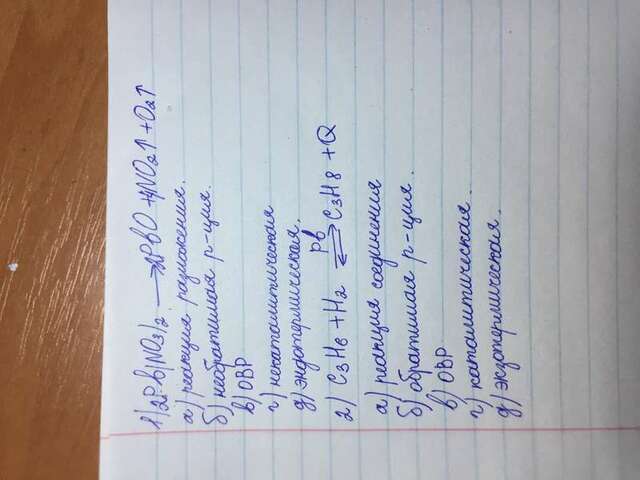 1) 2Pb(NO3)2 → 2PbO + 4NO2↑ + O2↑
а) реакция разложения.
б) необратимая р-ция.
в) ОВР
г) некаталитическая
д) эндотермическая.
2) C3H6 + H2 ⇌ Pb C3H8 + Q
а) реакция соединения
б) обратимая р-ция.
в) ОВР
г) каталитическая.
д) экзотермическая.